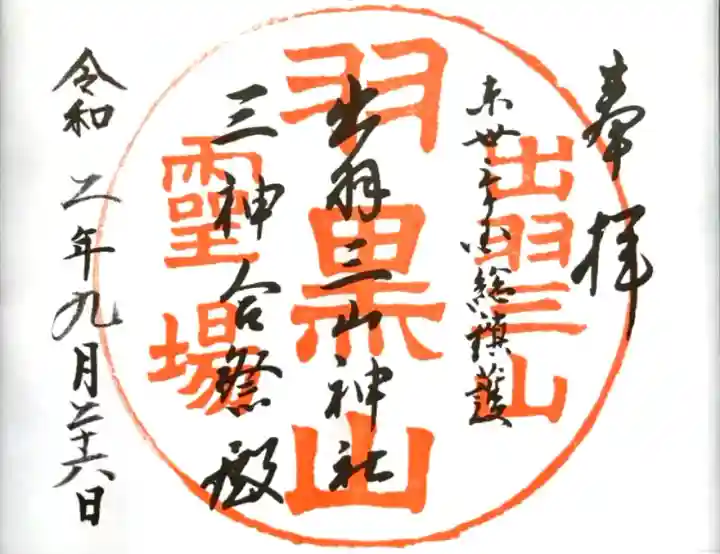 奉拝
東卅三ヶ国総鎮護
出羽三山神社
三神合祭殿
令和二年九月二十六日
出羽三山
羽黒山
靈場